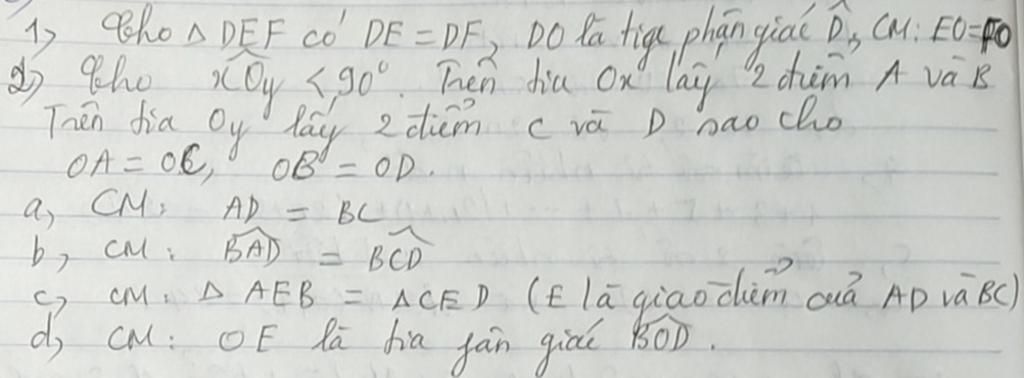 1, Cho Δ DEF có DE = DF, DO là tia phân giác D̂, CM: EO=FO
2, Cho xÔy < 90°. Trên tia Ox lấy 2 điểm A và B
Trên tia Oy lấy 2 điểm C và D sao cho
OA = OC, OB = OD.
a, CM: AD = BC
b, CM: BÂD = BĈD
c, CM: Δ AEB = ΔCED (E là giao điểm của AD và BC)
d, CM: OE là tia fân giác BÔD.